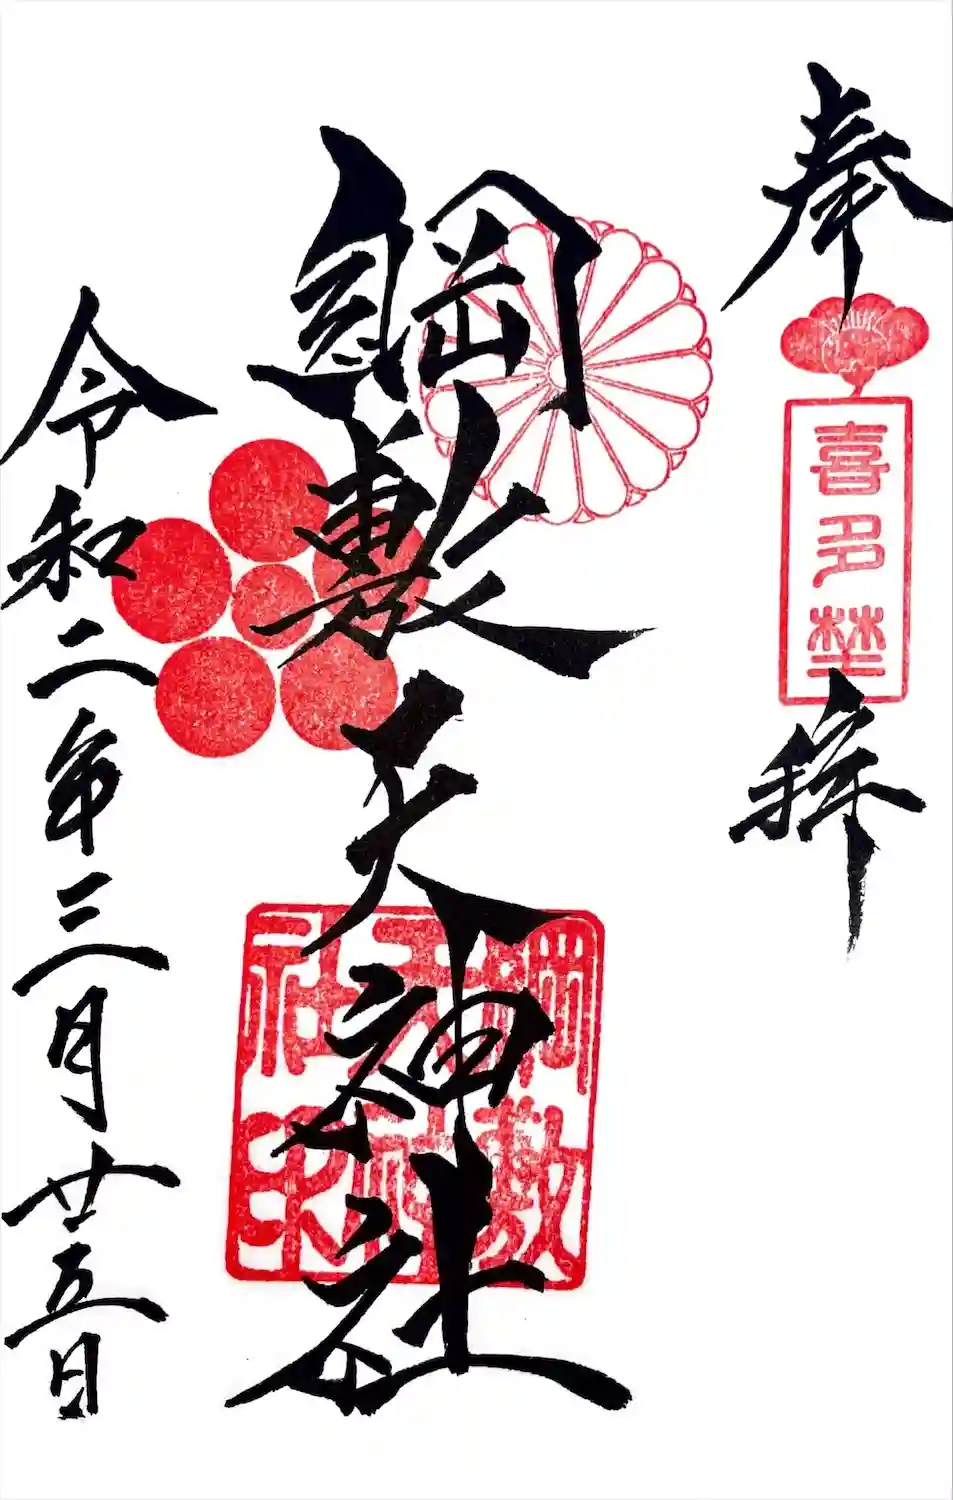 奉拝
喜多埜
綱敷天神社
綱敷天神社印
令和二年三月廿五日